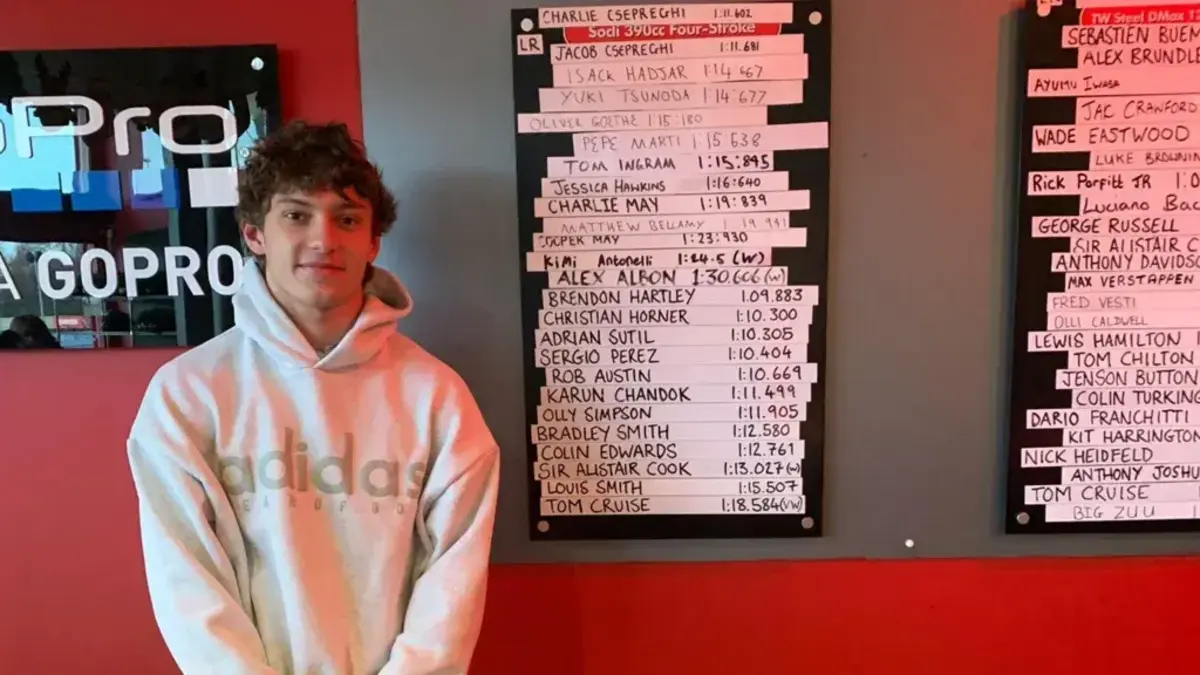 GoPro
A GOPRO
adidas
CHARLIE CSEPREGHI 1:11.602
Sodi 390cc Four-Stroke
LR
JACOB CSEPREGHI 1:11.681
ISACK HADJAR 1:14 667
YUKI TSUNODA 1:14.677
OLIVER GOETHE 1:15:180
PEPE MARTI 1:15 638
TOM INGRAM 1:15:845
JESSICA HAWKINS 1:16:640
CHARLIE MAY 1:19:839
MATTHEW BELLAMY 1:19 941
MAY 1:23:930
KiMi Antonelli 1:24.5 (W)
ALEX ALBON 1:30.606 (W)
BRENDON HARTLEY 1.09.883
CHRISTIAN HORNER 1:10.300
ADRIAN SUTIL 1:10.305
SERGIO PEREZ 1:10.404
ROB AUSTIN 1:10.669
KARUN CHANDOK 1:11.499
OLLY SIMPSON 1:11.905
BRADLEY SMITH 1:12.580
COLIN EDWARDS 1:12.761
SIR ALISTAIR COOK 1:13.027(W)
LOUIS SMITH 1:15.507
TOM CRUISE 1:18.584(VW)
LR
TW Steel DMax
SEBASTIEN BUEM
ALEX BRUNDLE
AYUMU Iwasa
JAC CRAWFORD
WADE EASTWOOD
LUKE BROWNIN
RICK Parfitt JR 1:0
Luciano Bac
GEORGE RUSSELL
SIR ALISTAIR C
ANTHONY DAVIDSO
MAX VERSTAPPEN
FRED VESTI
OLLI CALDWELL
LEWIS HAMILTON
TOM CHILTON
JENSON BUTTON
COLIN TURKING
DARIO FRANCHITTI
KIT HARRINGTON
NICK HEIDFELD
ANTHONY JOSHU
TOM CRUISE
BIG ZUU